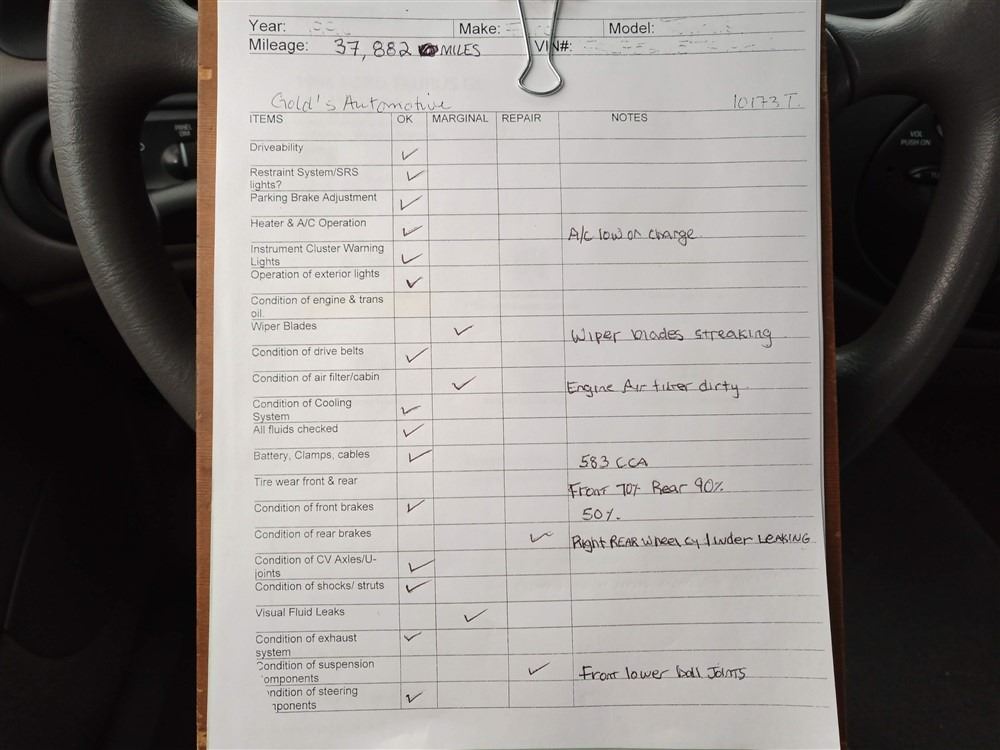 Year: Make: Model:
Mileage: 37,882 MILES VIN#:
Gold's Automotive 10173 T.
ITEMS OK MARGINAL REPAIR NOTES
Driveability ✓
Restraint System/SRS
lights? ✓
Parking Brake Adjustment ✓
Heater & A/C Operation ✓ A/c low on charge
Instrument Cluster Warning
Lights ✓
Operation of exterior lights ✓
Condition of engine & trans
oil.
Wiper Blades ✓ Wiper blades streaking
Condition of drive belts ✓
Condition of air filter/cabin ✓ Engine Air filter dirty
Condition of Cooling
System ✓
All fluids checked ✓
Battery, Clamps, cables ✓ 583 CCA
Tire wear front & rear Front 70% Rear 90%
Condition of front brakes ✓ 50%.
Condition of rear brakes ✓ Right REAR wheel cylinder LEAKING
Condition of CV Axles/U-
joints ✓
Condition of shocks/ struts ✓
Visual Fluid Leaks ✓
Condition of exhaust
system ✓
Condition of suspension
omponents ✓ Front lower ball Joints
ndition of steering
ponents ✓
PANEL
DIM
VOL
PUSH ON